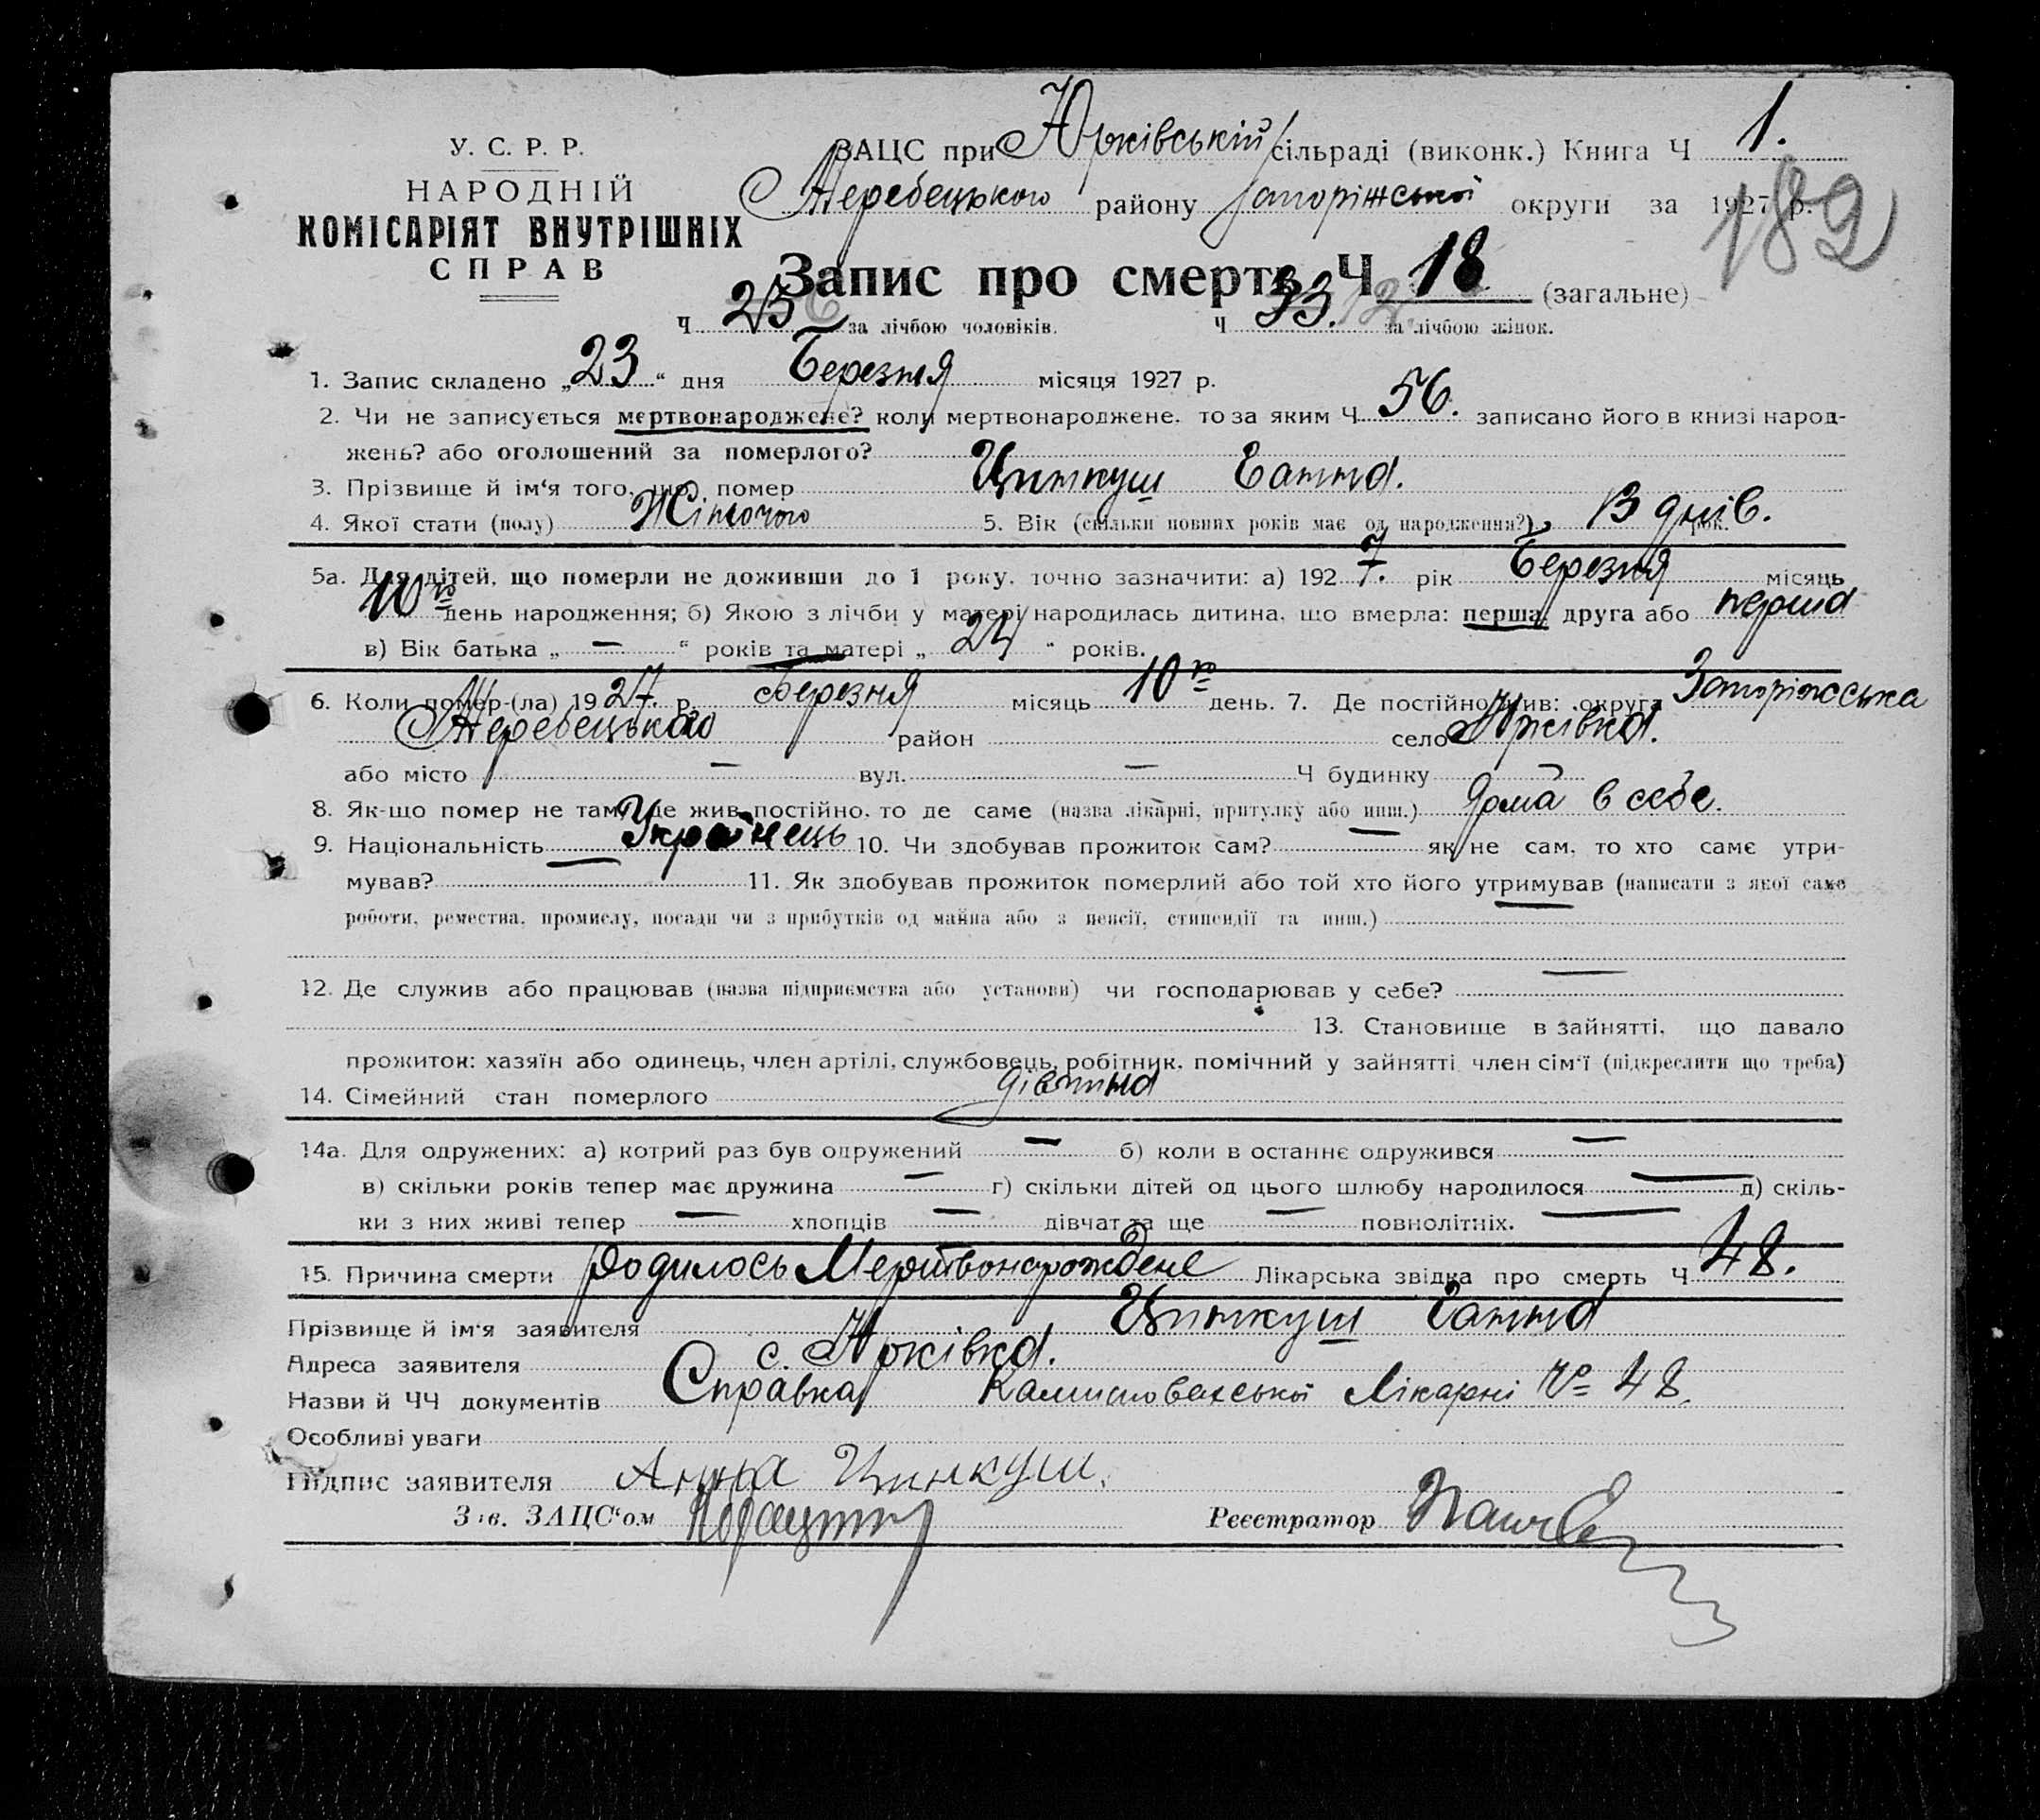 У. С. Р. Р.
НАРОДНІЙ
КОМІСАРІЯТ ВНУТРІШНІХ
СПРАВ
ЗАЦС при Юрківській сільраді (виконк.) Книга Ч 1.
Жеребецького району Запоріжської округи за 1927 р.
182
Запис про смерть Ч 18 (загальне)
Ч за лічбою чоловіків. Ч 33. за лічбою жінок.
1. Запис складено „23“ дня Березня місяця 1927 р.
2. Чи не записується мертвонароджене? коли мертвонароджене, то за яким Ч 56. записано його в книзі народ-
жень? або оголошений за померлого?
3. Прізвище й ім'я того, що помер Цинкуш Ганна.
4. Якої стати (полу) Жіночого 5. Вік (скільки повних років має од народження?) 13 днів. рок.
5а. Для дітей, що померли не доживши до 1 року, точно зазначити: а) 1927. рік Березня місяць
10го день народження; б) Якою з лічби у матері народилась дитина, що вмерла: перша, друга або перша
в) Вік батька „ — “ років та матері „ 24 “ років.
6. Коли помер-(ла) 1927. р. Березня місяць 10го день. 7. Де постійно жив: округа Запоріжська
Жеребецького район село Юрківка.
або місто — вул. — Ч будинку —
8. Як-що помер не там, де жив постійно, то де саме (назва лікарні, притулку або инш.) дома в себе.
9. Національність Українець 10. Чи здобував прожиток сам? — як не сам, то хто саме утри-
мував? — 11. Як здобував прожиток померлий або той хто його утримував (написати з якої саме
роботи, ремества, промислу, посади чи з прибутків од майна або з пенсії, стипендії та инш.) —
12. Де служив або працював (назва підприємства або установи) чи господарював у себе? —
13. Становище в зайнятті, що давало
прожиток: хазяїн або одинець, член артілі, службовець, робітник, помічний у зайнятті член сім'ї (підкреслити що треба)
14. Сімейний стан померлого дівчина
14а. Для одружених: а) котрий раз був одружений — б) коли в останнє одружився —
в) скільки років тепер має дружина — г) скільки дітей од цього шлюбу народилося — д) скіль-
ки з них живі тепер — хлопців — дівчат та ще — повнолітніх. —
15. Причина смерти родилось Мертвонарождене Лікарська звідка про смерть Ч 48.
Прізвище й ім'я заявителя Цинкуш Ганна
Адреса заявителя с. Юрківка.
Назви й ЧЧ документів Справка Камишовахської Лікарні № 48.
Особливі уваги
Підпис заявителя Анна Цинкуш.
Зав. ЗАЦС'ом Реєстратор